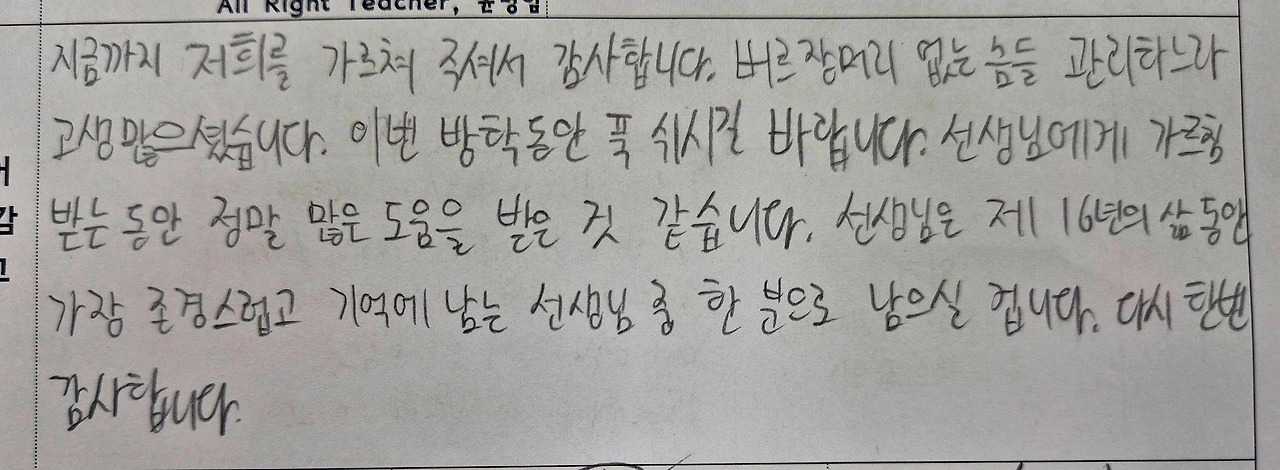 All Right Teacher,
지금까지 저희를 가르쳐 주셔서 감사합니다. 버르장머리 없는 놈들 관리하느라
고생많으셨습니다. 이번 방학동안 푹 쉬시길 바랍니다. 선생님에게 가르침
받는 동안 정말 많은 도움을 받은 것 같습니다. 선생님은 제 16년의 삶 동안
가장 존경스럽고 기억에 남는 선생님 중 한 분으로 남으실 겁니다. 다시 한번
감사합니다.
감
고